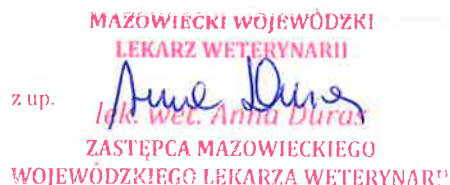 MAZOWIECKI WOJEWÓDZKI
LEKARZ WETERYNARII
z up.
Anna Duras
lek. wet. Anna Duras
ZASTĘPCA MAZOWIECKIEGO
WOJEWÓDZKIEGO LEKARZA WETERYNARII